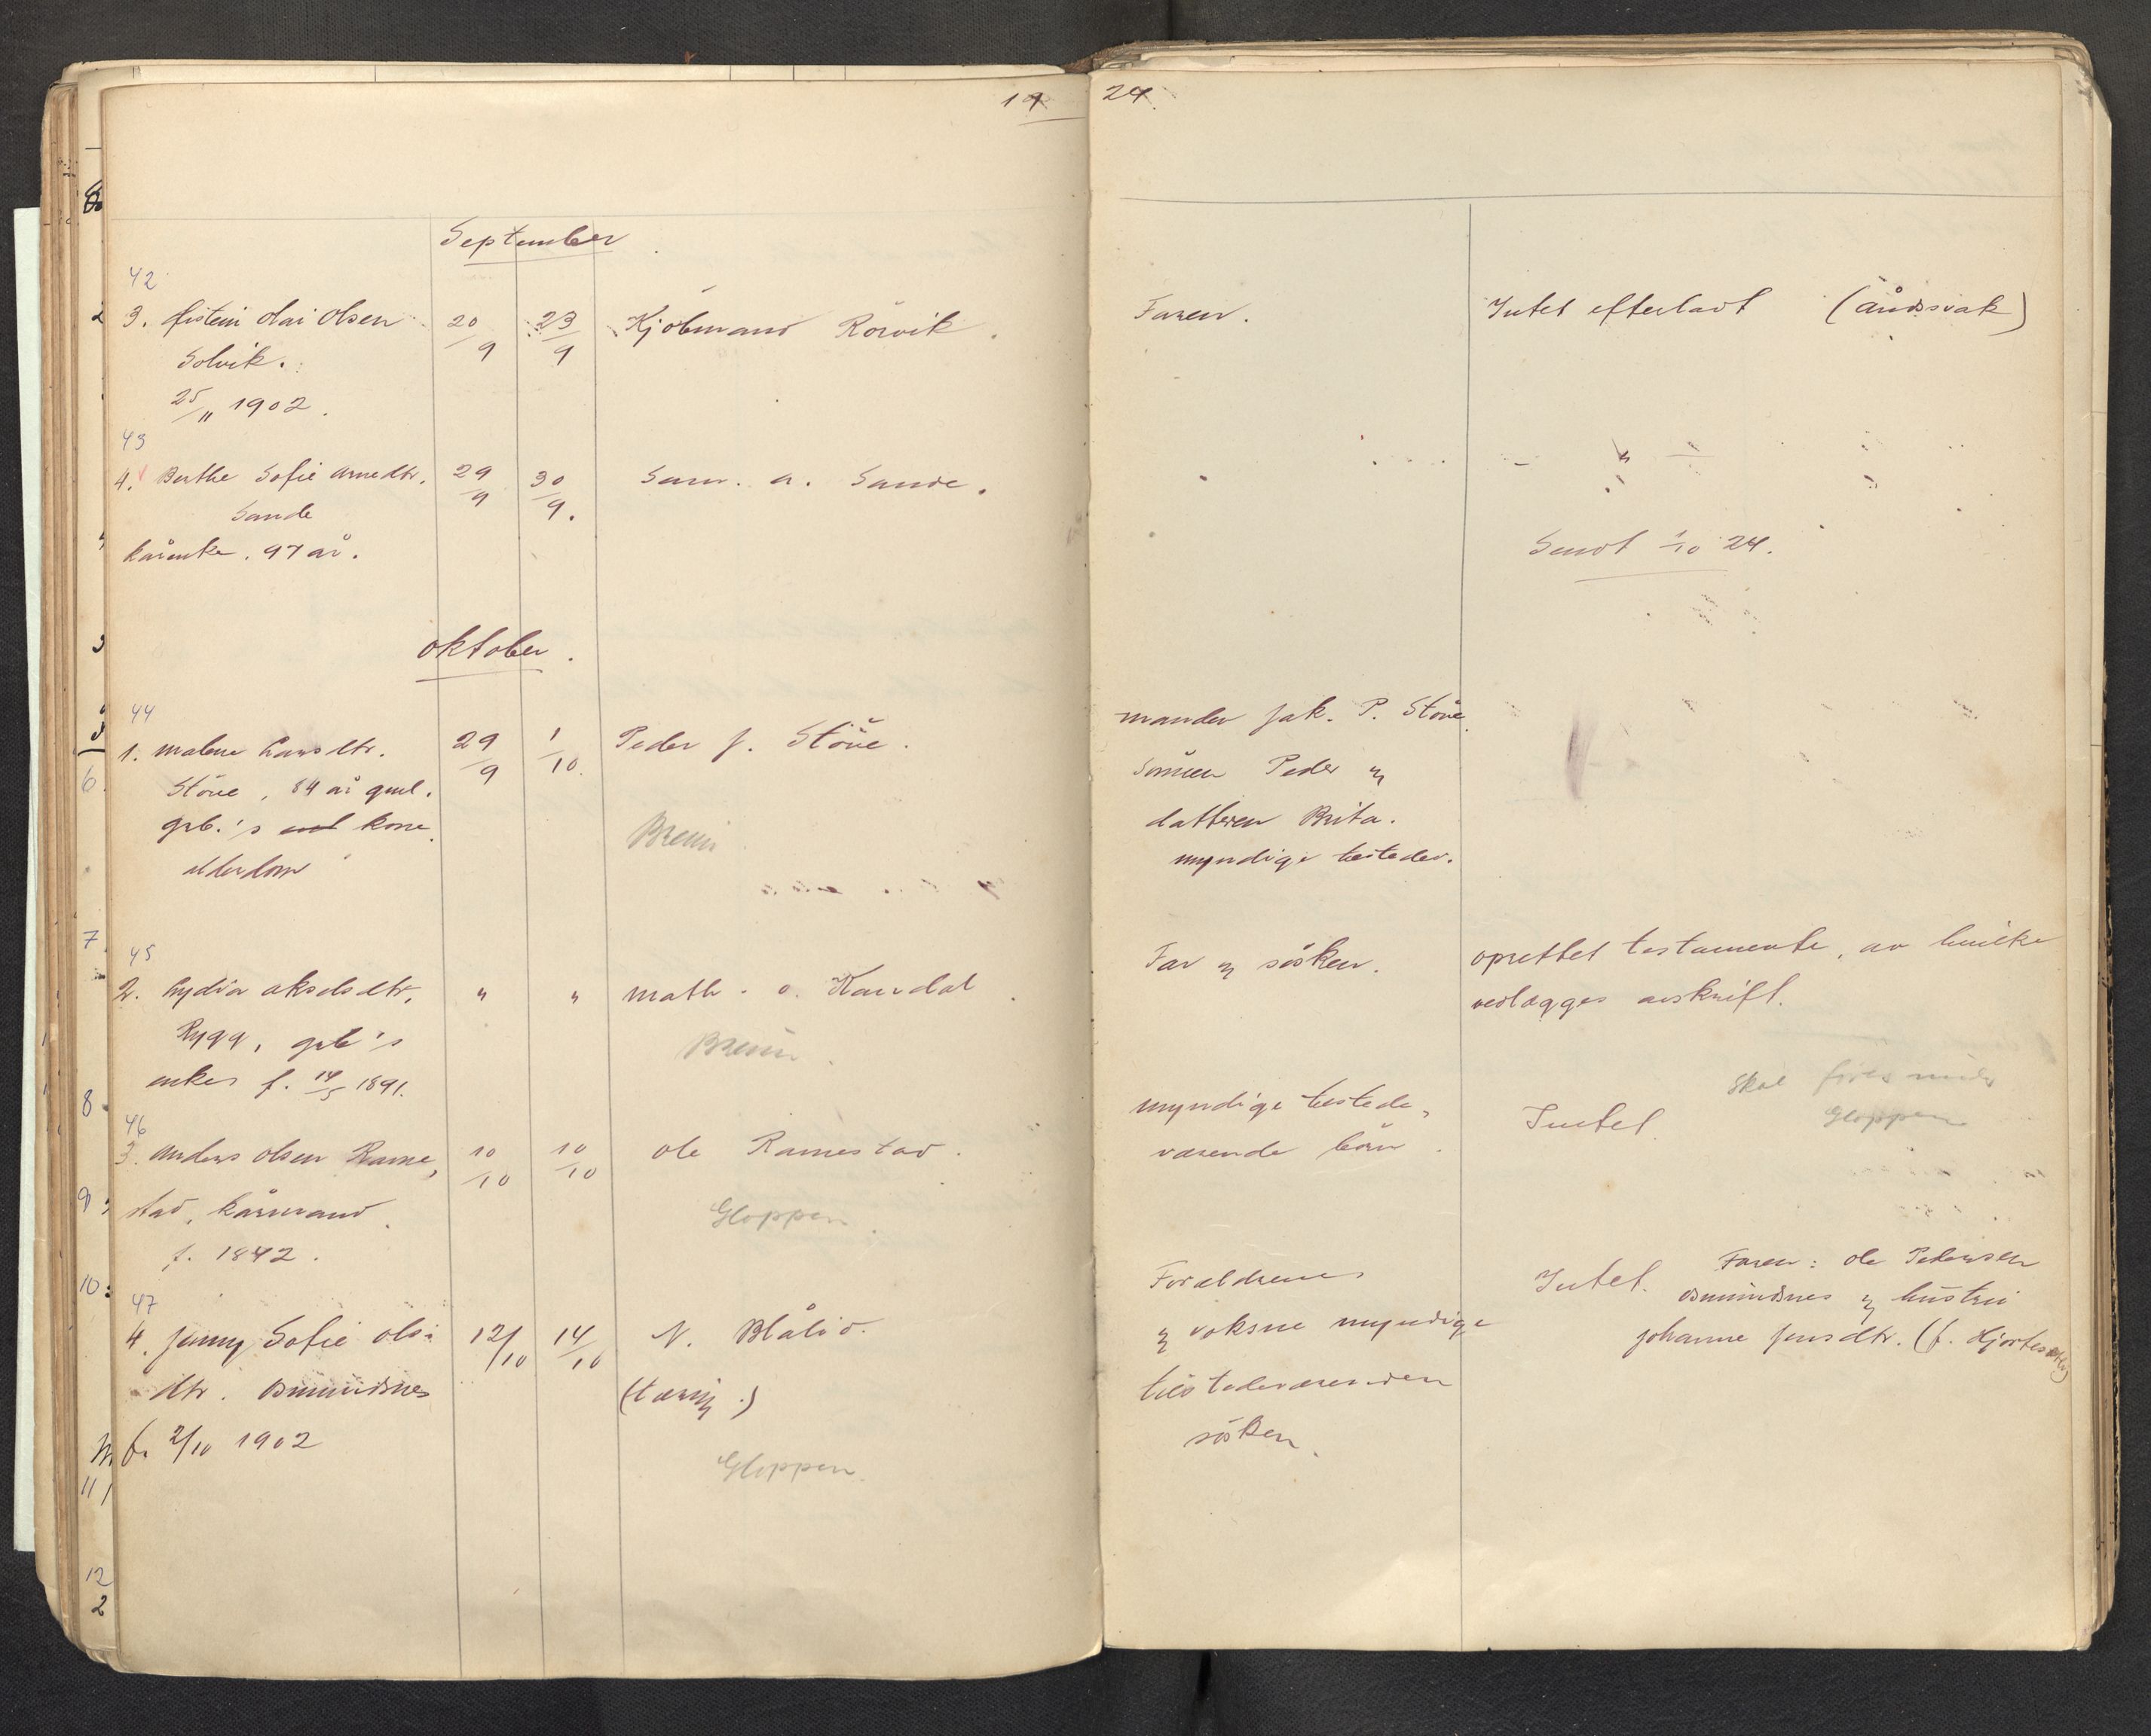 19
24.
September
42
3. Øistein Olai Olsen
Solvik.
25/11 1902.
20/9
23/9
Kjöbmand Rörvik.
Faren.
Intet efterladt (åndssvak)
43
4. Berthe Sofie Arnedtr.
Sande
kårenke. 97 år.
29/9
30/9.
Sam. A. Sande.
"
Sendt 1/10 24.
Oktober.
44
1. Malene Larsdtr.
Störe, 84 år gml.
grb.'s kone.
Alderdom
29/9
1/10.
Peder J. Störe.
Breim
manden Jak. P. Störe.
Sönnen Peder og
datteren Brita.
myndige tilstede.
45
2. Lydia Akselsdtr.
Rygg, grb's
enke f. 14/5 1891.
"
"
Math. O. Kandal.
Breim.
Far og sösken.
oprettet testamente, av hvilke
vedlægges avskrift.
46
3. Anders Olsen Rame,
stad, kårmand.
f. 1842.
10/10
10/10
Ole Ramestad.
Gloppen.
myndige tilstede,
værende börn.
Intet.
Skal föres under
Gloppen
47
4. Jenny Sofie Ols:
dtr. Osmundsnes
f. 2/10 1902
12/10
14/10
N. Blålid.
(tæring.)
Gloppen.
Forældrene
og voksne myndige
tilstedeværenden
sösken.
Intet.
Faren: Ole Pedersen
Osmundsnes og hustru
Johanne Jensdtr.